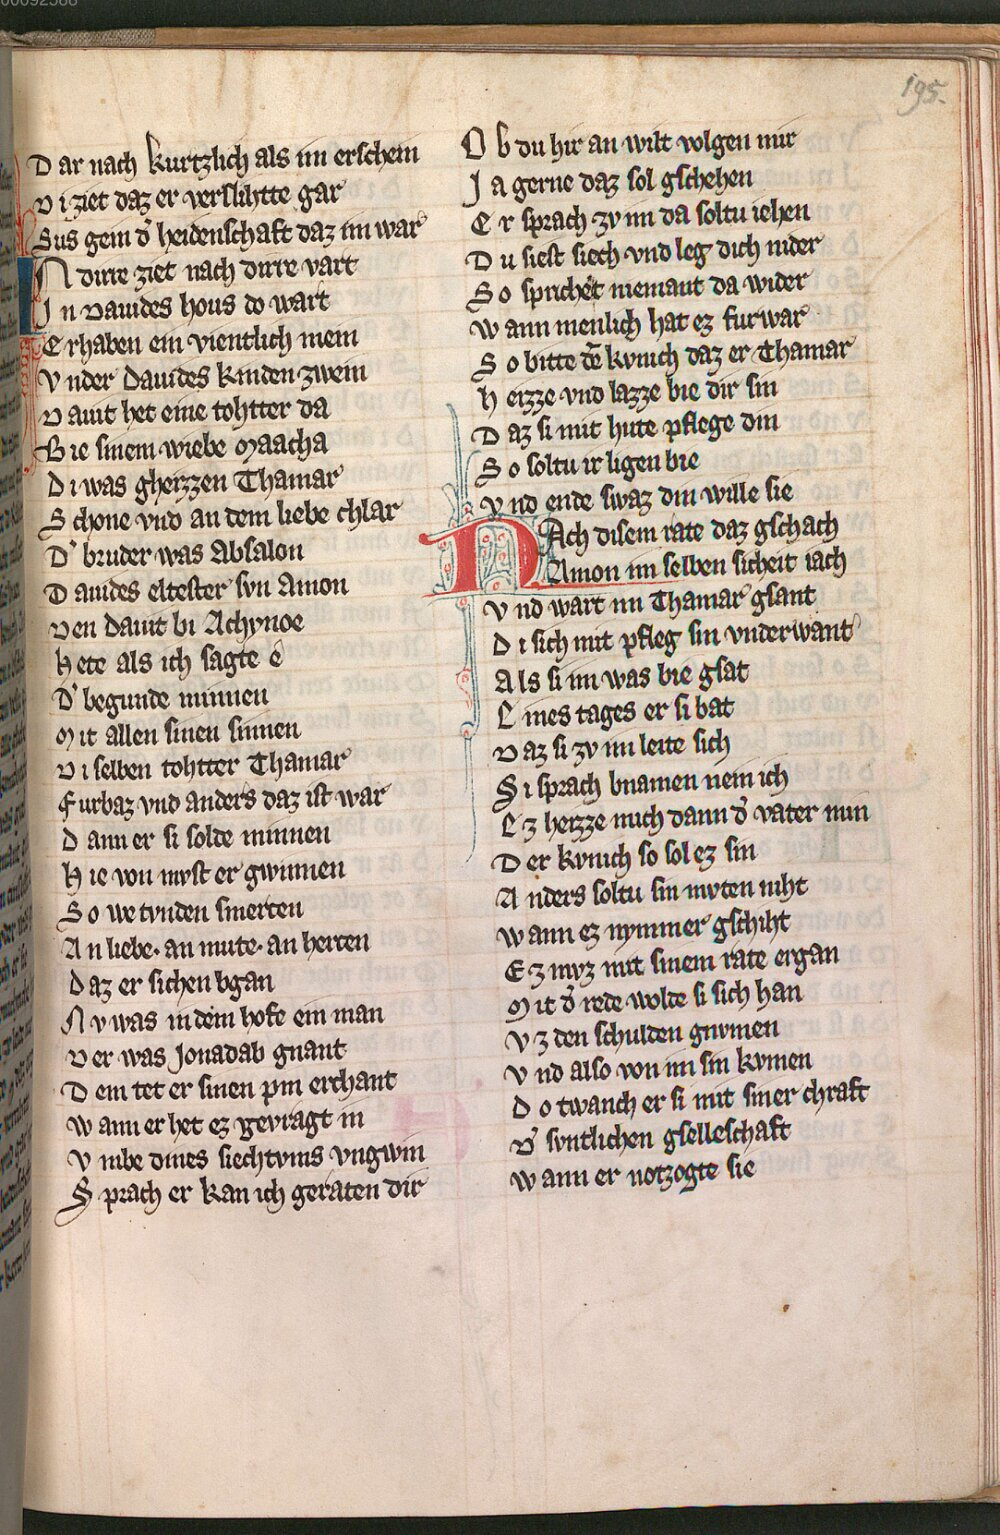 195.
Dar nach kurtzlich als im erschein
Di ziet daz er verslihtte gar
Sus gein d' heidenschaft daz im war
An dirre ziet nach dirre vart
In Dauides hous do wart
Erhaben ein vientlich mein
Vnder Dauides kinden zwein
Dauit het eine tohtter da
Bie sinem wiebe Maacha
Di was gheizzen Thamar
Schone vnd an dem liebe chlar
D' bruder was Absalon
Dauides eltester svn Amon
Den Dauit bi Achynoe
Hete als ich sagte e
D' begunde minnen
Mit allen sinen sinnen
Di selben tohtter Thamar
Furbaz vnd anders daz ist war
Dann er si solde minnen
Hie von mvst er gwinnen
So we tvnden smerten
An liebe· an mute· an herten
Daz er sichen bgan
Nv was in dem hofe ein man
Der was Jonadab gnant
Dem tet er sinen pin erchant
Wann er het ez gevragt in
Vmbe dines siechtvms vngwin
Sprach er kan ich geraten dir
Ob du hir an wilt volgen mir
Ja gerne daz sol gschehen
Er sprach zv im da soltu iehen
Du siest siech vnd leg dich nider
So sprichet niemant da wider
Wann menlich hat ez fur war
So bitte de kvnich daz er Thamar
Heizze vnd lazze bie dir sin
Daz si mit hute pflege din
So soltu ir ligen bie
Vnd ende swaz din wille sie
Nach disem rate daz gschach
Amon im selben sicheit iach
Vnd wart im Thamar gsant
Di sich mit pfleg sin vnderwant
Als si im was bie gsat
Eines tages er si bat
Daz si zv im leite sich
Si sprach bnamen nein ich
Ez heizze mich dann d' vater min
Der kvnich so sol ez sin
Anders soltu sin mvten niht
Wann ez nymmer gschiht
Ez mvz mit sinem rate ergan
Mit d' rede wolde si sich han
Vz den schulden gnvmen
Vnd also von im sin kvmen
Do twanch er si mit siner chraft
D' svntlichen gselleschaft
Wann er notzogte sie